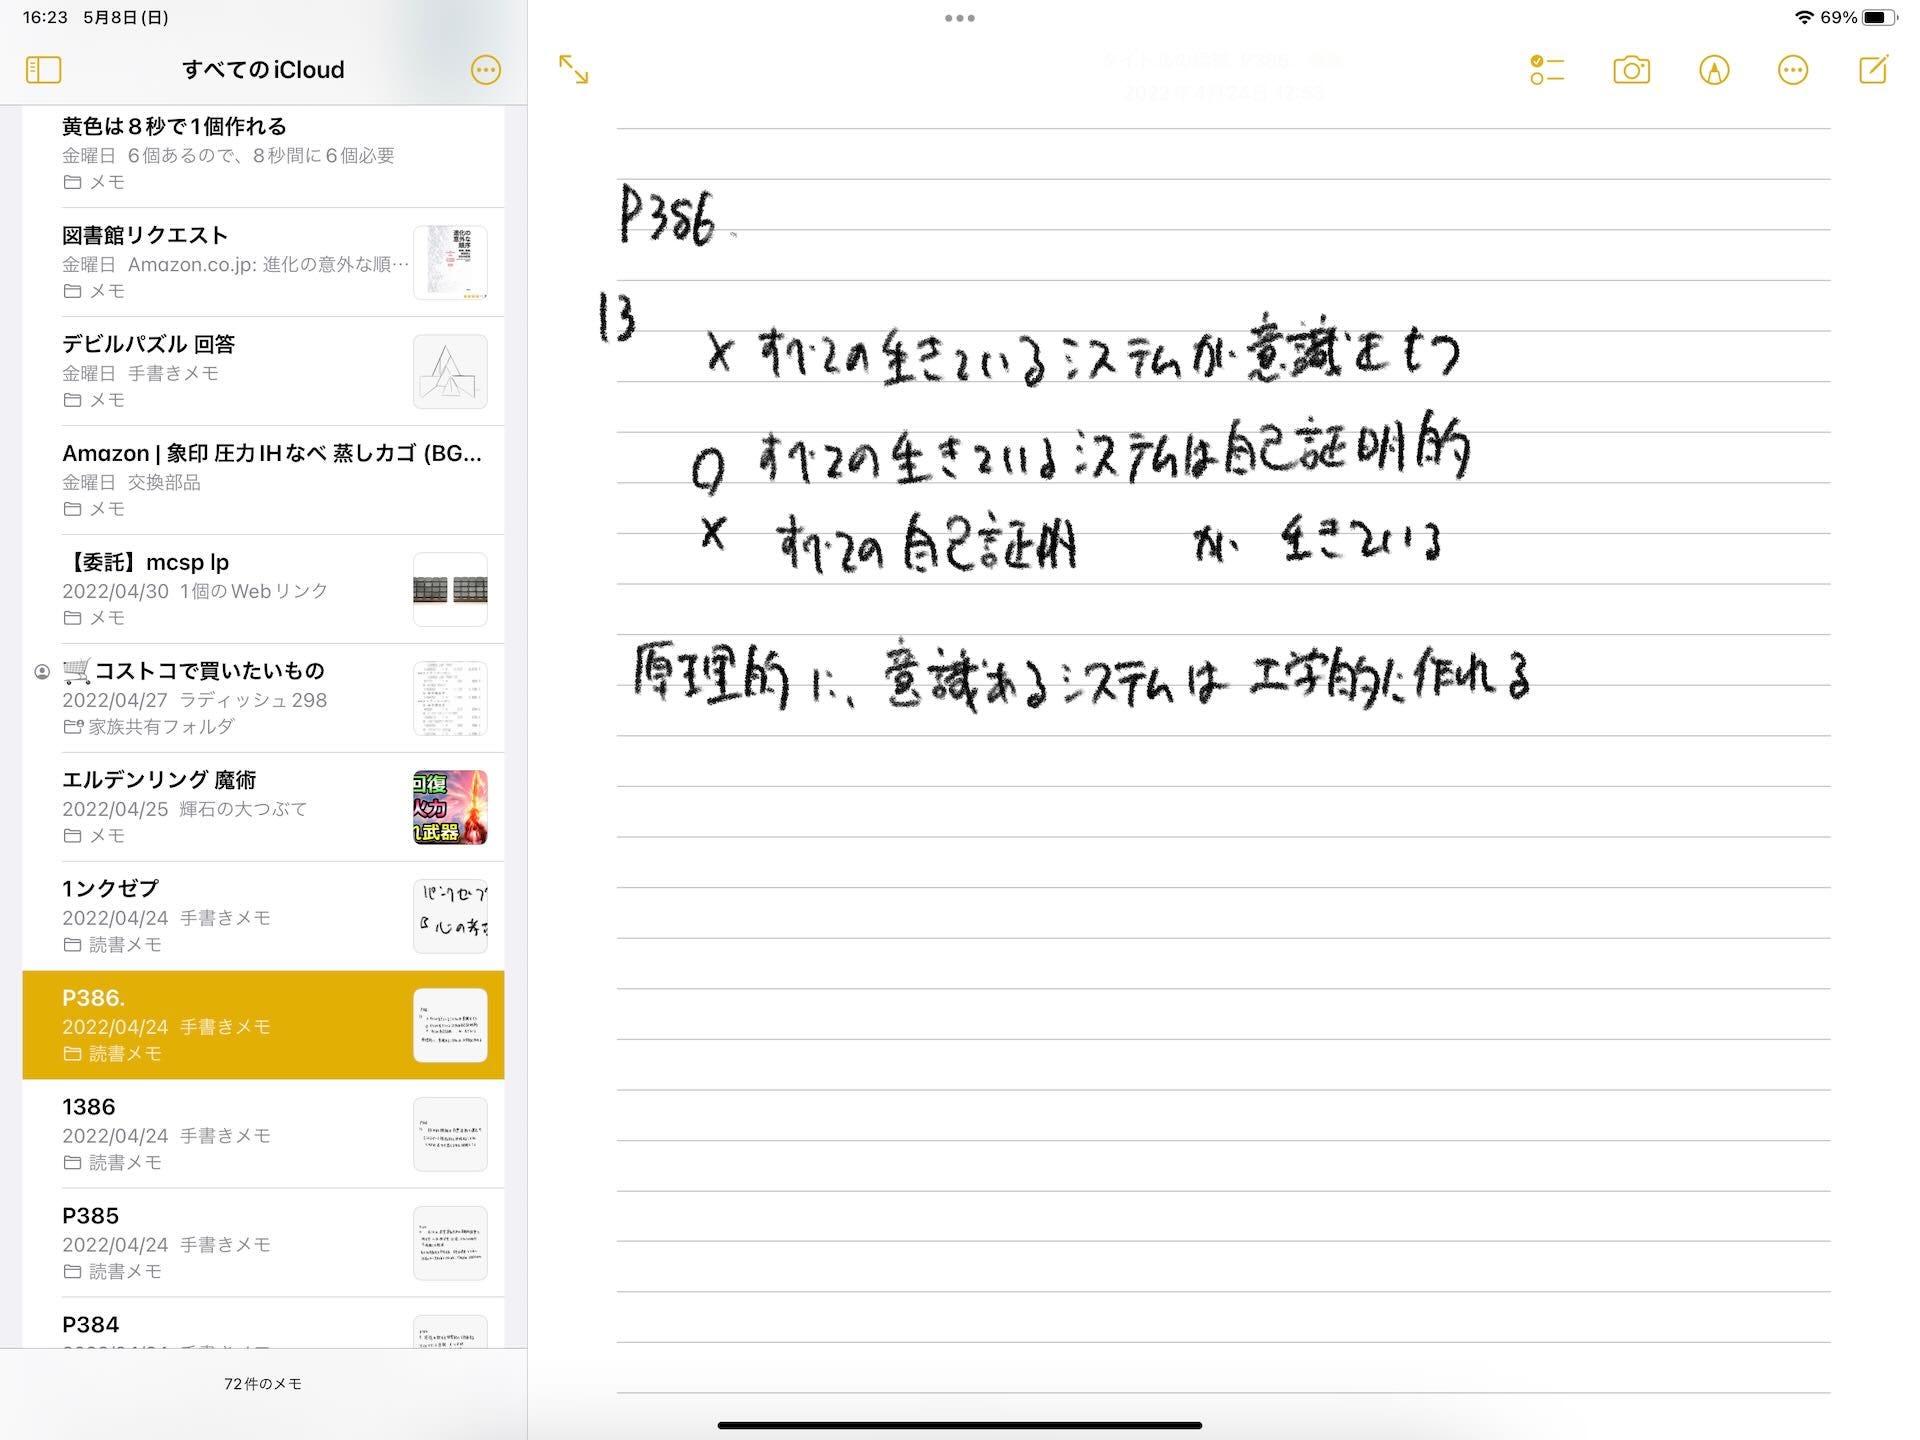 16:23 5月8日(日)
69%
すべてのiCloud
黄色は8秒で1個作れる
金曜日 6個あるので、8秒間に6個必要
メモ
図書館リクエスト
金曜日 Amazon.co.jp: 進化の意外な順…
メモ
デビルパズル 回答
金曜日 手書きメモ
メモ
Amazon | 象印 圧力IHなべ 蒸しカゴ (BG...
金曜日 交換部品
メモ
【委託】mcsp lp
2022/04/30 1個のWebリンク
メモ
🛒コストコで買いたいもの
2022/04/27 ラディッシュ298
家族共有フォルダ
エルデンリング 魔術
2022/04/25 輝石の大つぶて
メモ
回復
火力
れ武器
1ンクゼプ
2022/04/24 手書きメモ
読書メモ
P386.
2022/04/24 手書きメモ
読書メモ
1386
2022/04/24 手書きメモ
読書メモ
P385
2022/04/24 手書きメモ
読書メモ
P384
72件のメモ
P386.
13
× すべての生きているシステムが意識をもつ
○ すべての生きているシステムは自己証明的
× すべての自己証明 が 生きている
原理的に、意識あるシステムは工学的に作れる